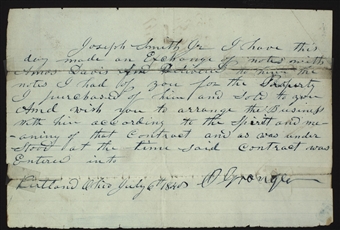 Joseph Smith Jr I have this
day made an Exchange of notes with
Amos Davis he has the
notes I had of you for the Property
I purchased of him and sold to you
And wish you to arrange the Business
with him according to the Spirit and me-
aning of that Contract and as was under
stood at the time said contract was
Entered into
Kirtland Ohio July O Granger